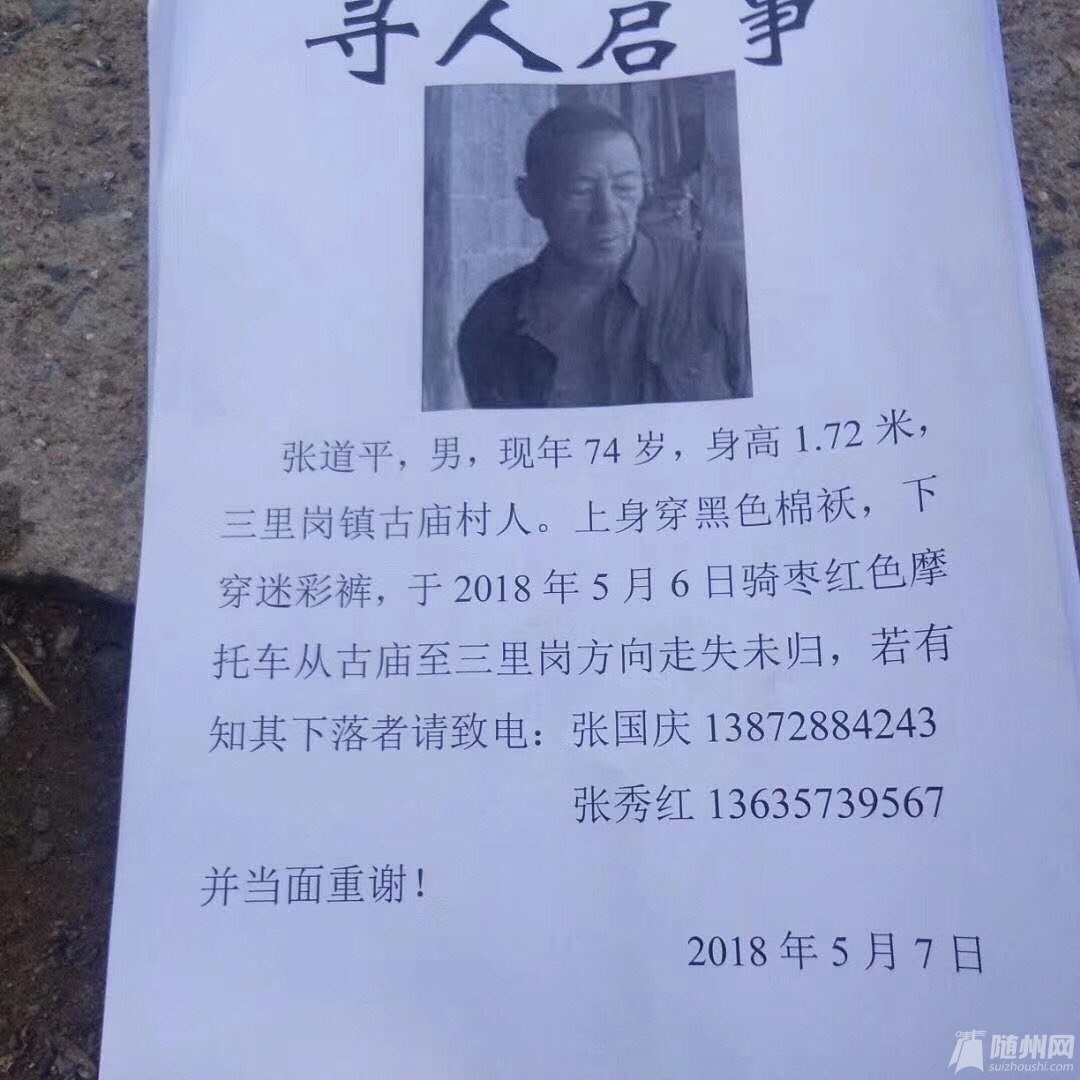 寻人启事
张道平，男，现年 74 岁，身高 1.72 米，
三里岗镇古庙村人。上身穿黑色棉袄，下
穿迷彩裤，于 2018 年 5 月 6 日骑枣红色摩
托车从古庙至三里岗方向走失未归，若有
知其下落者请致电：张国庆 13872884243
张秀红 13635739567
并当面重谢！
2018 年 5 月 7 日
随州网
suizhoushi.com